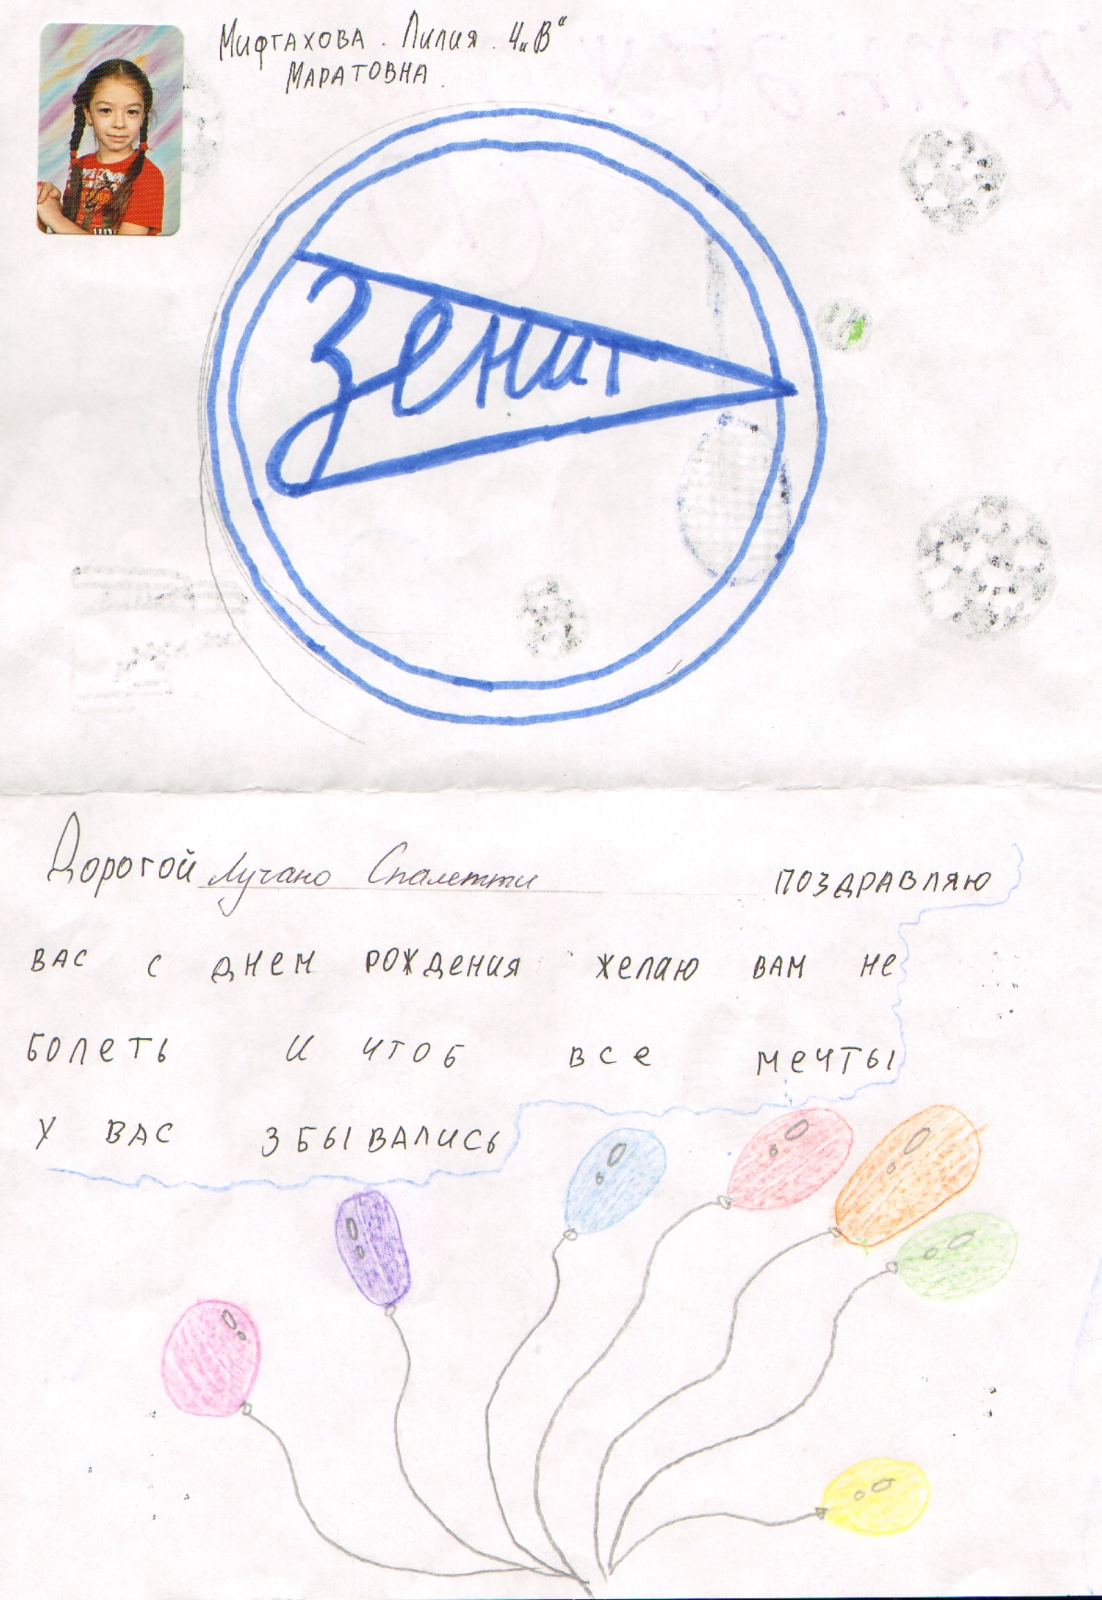 Мифтахова. Лилия. 4 „В“
Маратовна.
Зенит
Дорогой Лучано Спалетти поздравляю
вас с днем рождения желаю вам не
болеть и чтоб все мечты
у вас збывались